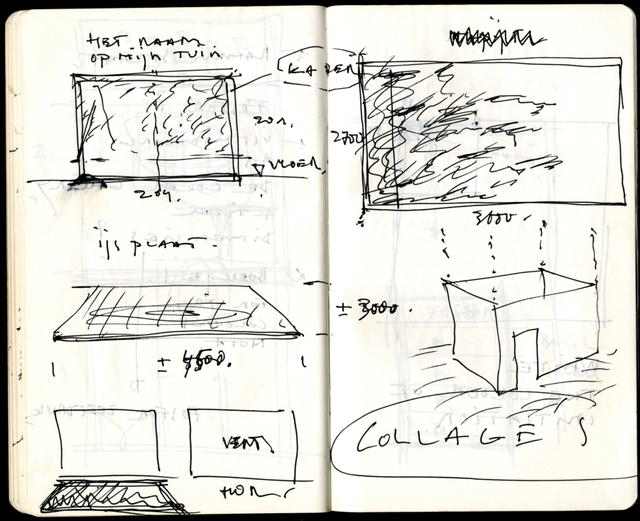 HET RAAM
OP MIJN TUIN
KADER
201.
VLOER.
204.
ijs PLAAT.
± 4500.
VERT,
HOR,
2700
3000.
± 3000.
COLLAGES